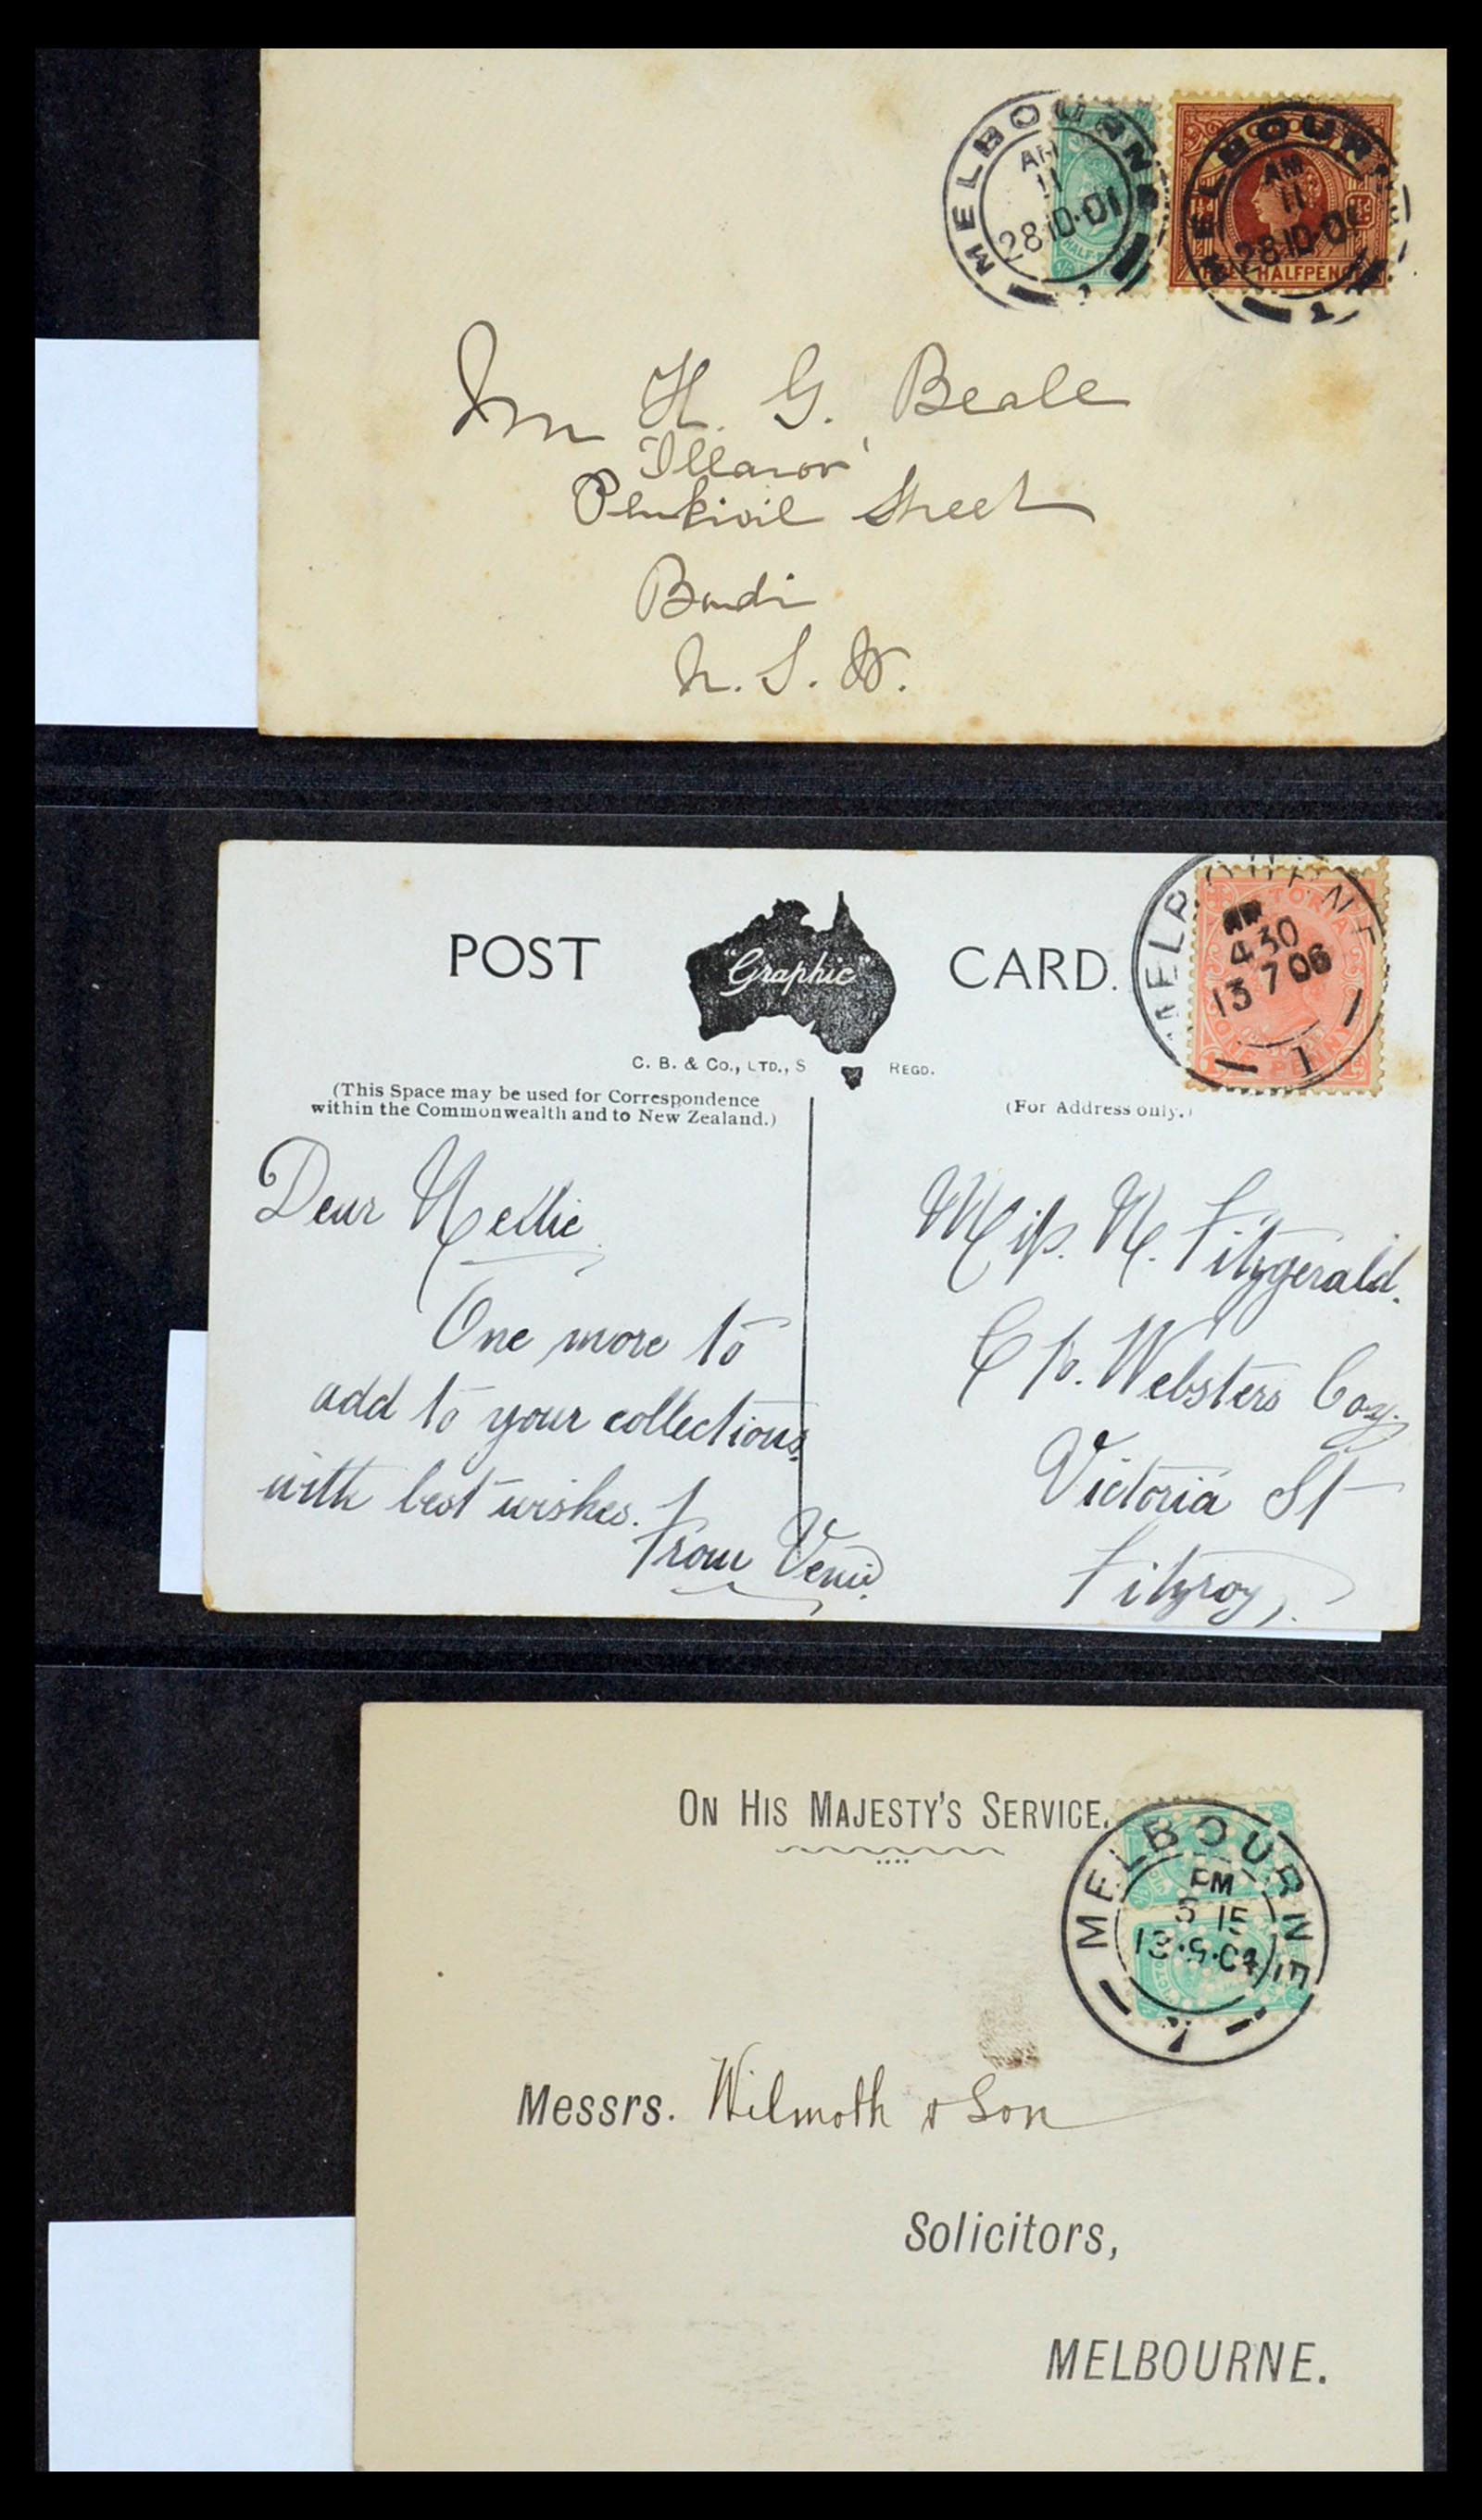 MELBOURNE
AM
11
28 10·01
1
HALF-PENNY
MELBOURNE
AM
11
28 10·01
2
THREE HALFPENCE
H. G. Beale
Penkivil Street
Bondi
N. S. W.
POST "Graphic" CARD.
C. B. & Co., LTD., S REGD.
(This Space may be used for Correspondence
within the Commonwealth and to New Zealand.)
(For Address only.)
MELBOURNE
4 30
13 7 06
1
VICTORIA
ONE PENNY
Dear Nellie
One more to
add to your collections
with best wishes.
From
Miss. N. Fitzgerald.
C/o. Websters Coy.
Victoria St
Fitzroy.
ON HIS MAJESTY'S SERVICE.
MELBOURNE
PM
5 15
13·9·04
Messrs. Wilmoth & Son
Solicitors,
MELBOURNE.